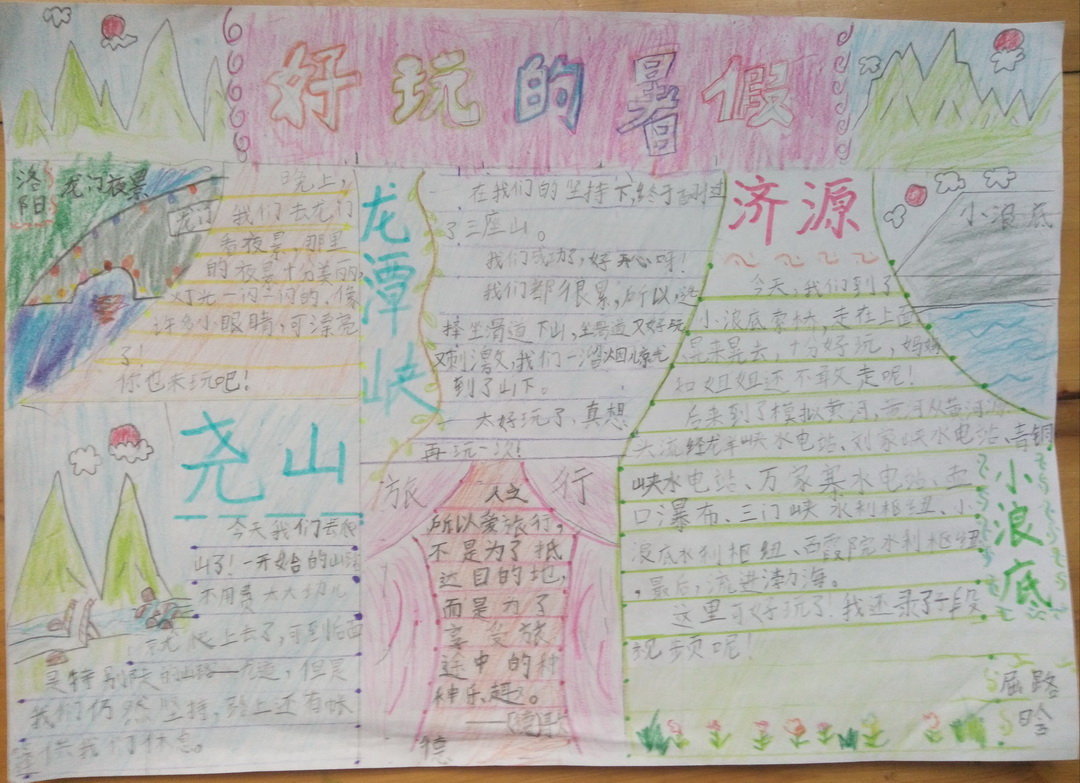 好玩的暑假
洛阳
龙门夜景
龙门
晚上，
我们去龙门
看夜景，那里
的夜景十分美丽，
灯光一闪一闪的，像
许多小眼睛，可漂亮
了！
你也来玩吧！
龙潭峡
在我们的坚持下，终于
了三座山。
我们成功了，好开心呀！
我们都很累，所以，选
择坐滑道下山，坐滑道又好玩
又刺激，我们一溜烟
到了山下。
太好玩了，真想
再玩一次！
济源
小浪底
今天，我们到了
小浪底索桥，走在上面
晃来晃去，十分好玩，妈妈
和姐姐还不敢走呢！
后来到了模拟黄河，黄河从黄河源
头流经龙羊峡水电站、刘家峡水电站、青铜
峡水电站、万家寨水电站、壶
口瀑布、三门峡水利枢纽、小
浪底水利枢纽、西霞院水利枢纽
，最后，流进渤海。
这里可好玩了！我还录了一段
视频呢！
小浪底
屈路
晗
尧山
今天我们去尧
山了！一开始的山路
不用费太大劲儿
就爬上去了，可到后面
是特别陡的山路
但是
我们仍然坚持，路上还有帐
篷供我们休息。
旅行
人之
所以爱旅行，
不是为了抵
达目的地，
而是为了
享受旅
途中的种
种乐趣。
——【德】歌
德